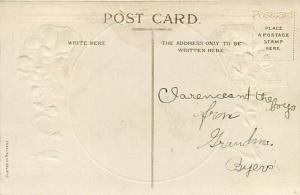 POST CARD.
WRITE HERE
THE ADDRESS ONLY TO BE
WRITTEN HERE.
POSTCARD
PLACE
A POSTAGE
STAMP
HERE.
Clarence and the boys
from
Grandma.
Byers